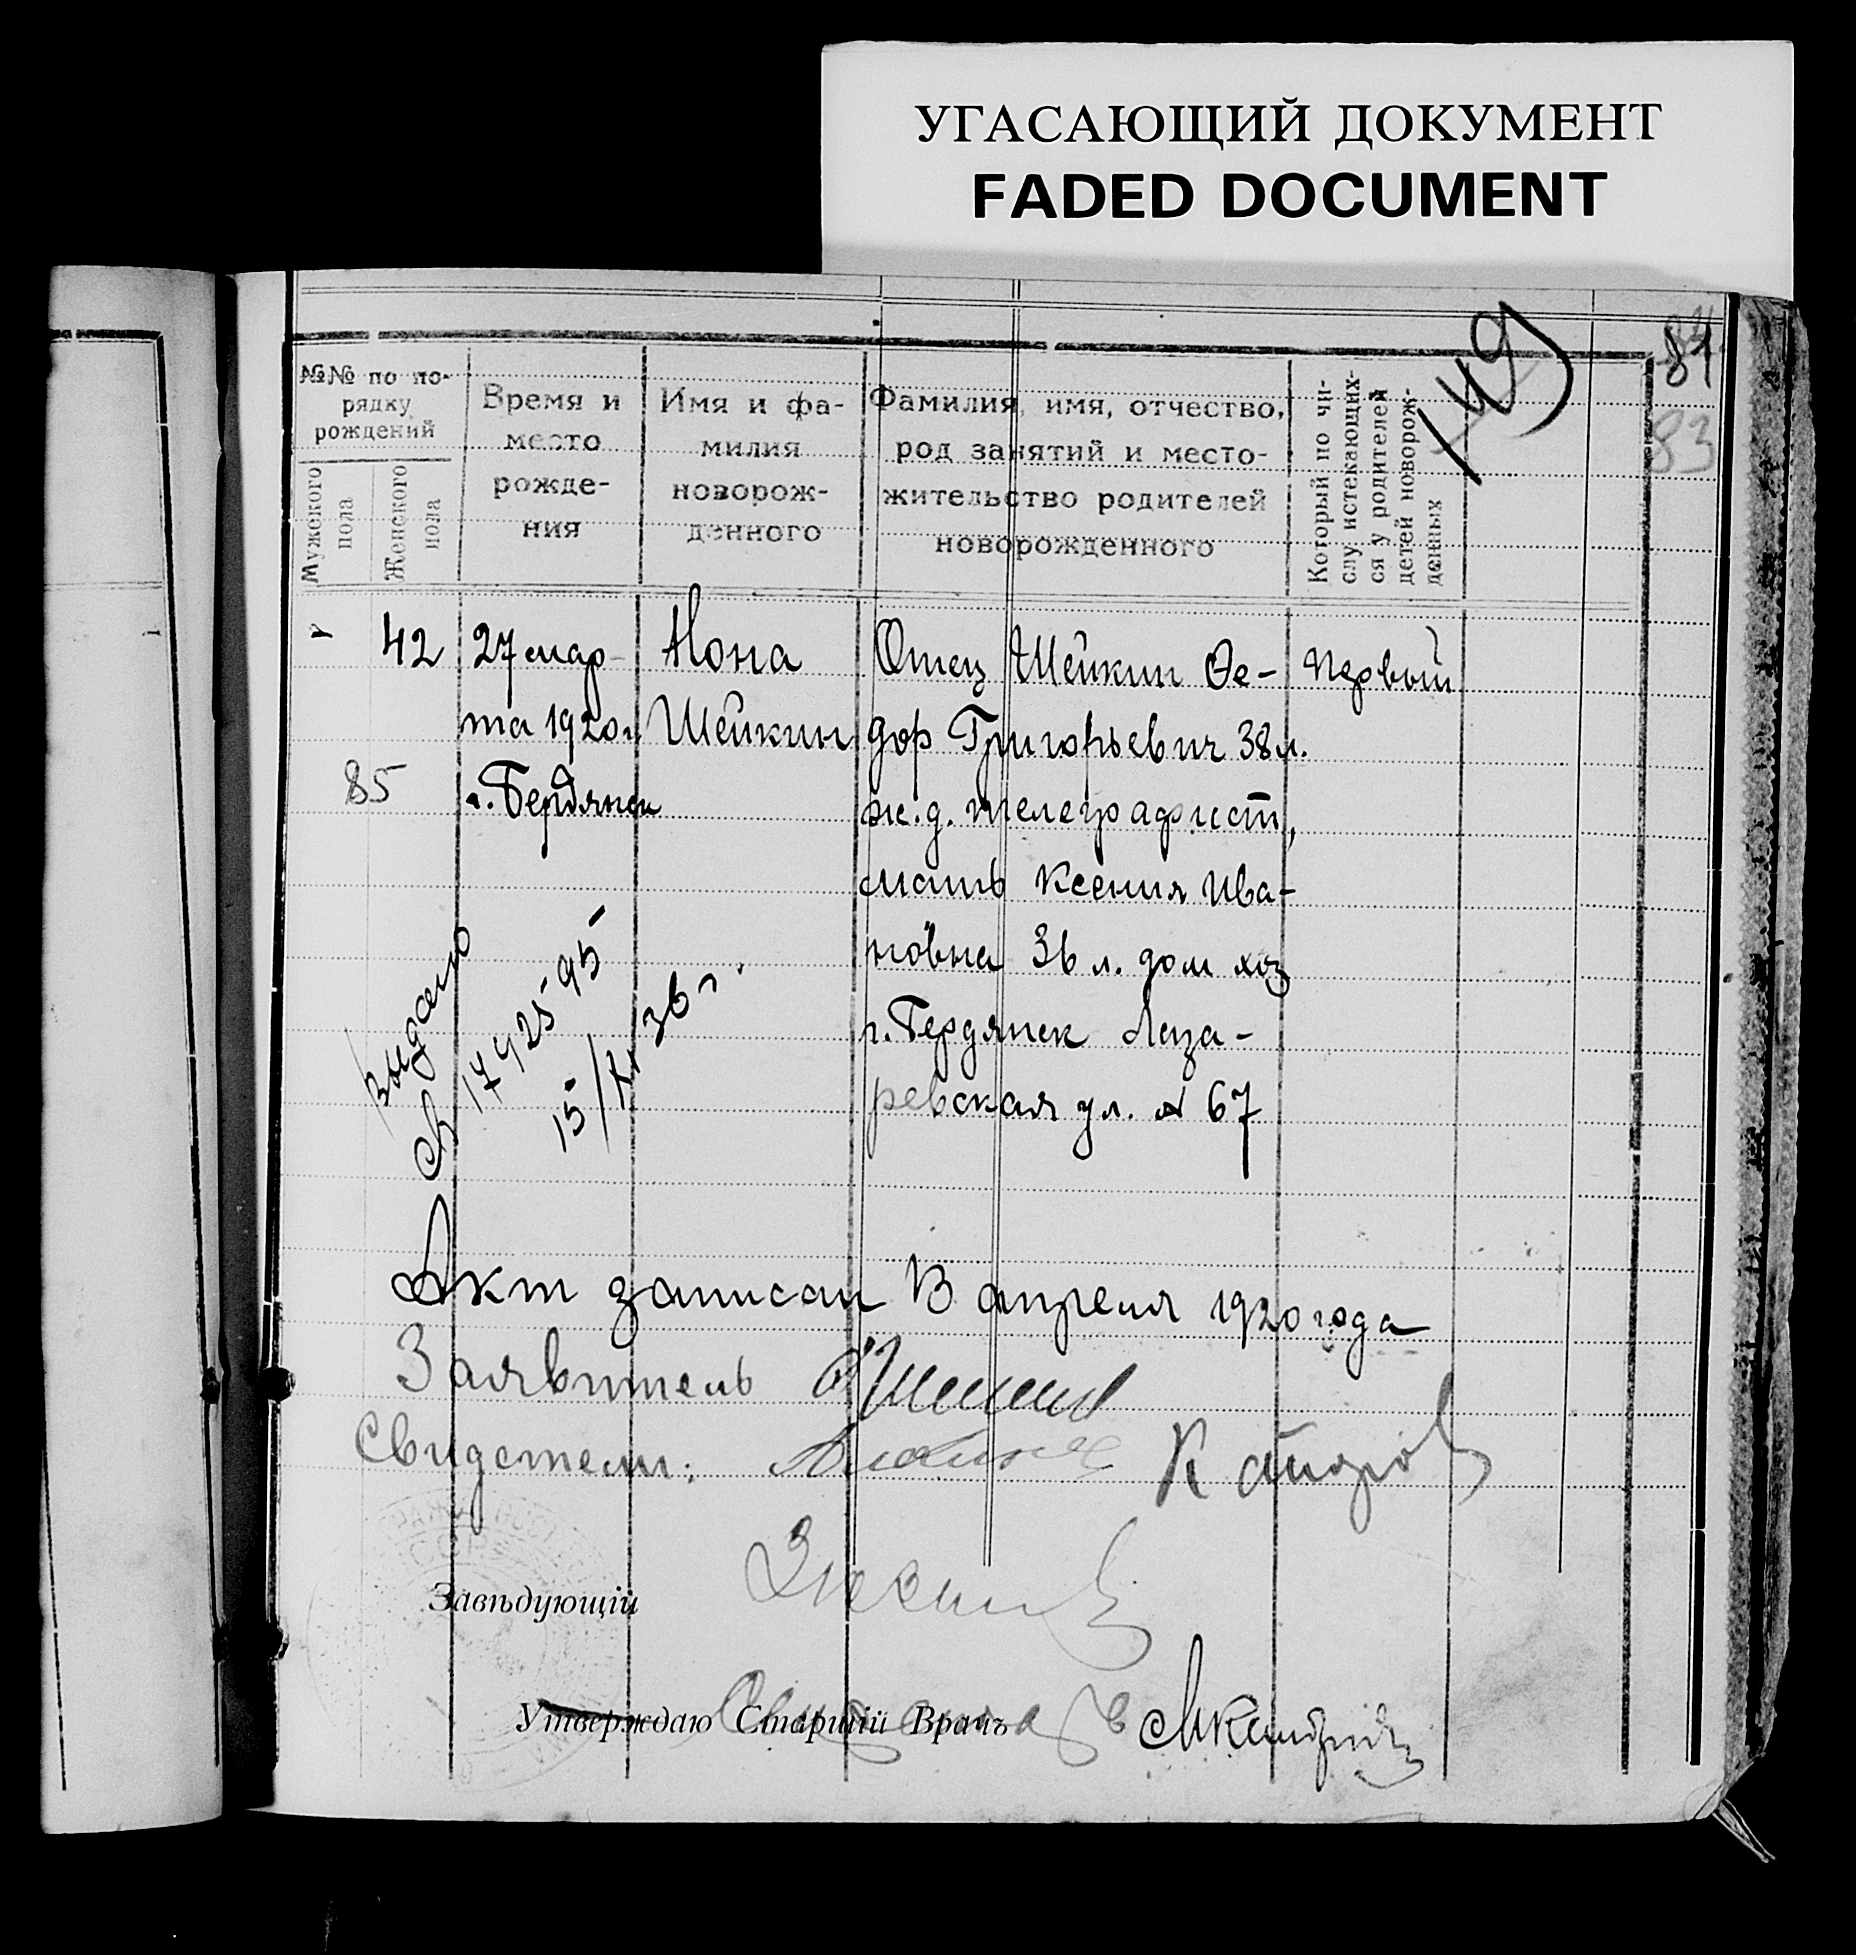 УГАСАЮЩИЙ ДОКУМЕНТ
FADED DOCUMENT
149
84
83
№№ по по-
рядку
рождений
Мужского
пола
Женского
пола
Время и
место
рожде-
ния
Имя и фа-
милия
новорож-
денного
Фамилия, имя, отчество,
род занятий и место-
жительство родителей
новорожденного
Который по чи-
слу истекающих-
ся у родителей
детей новорож-
денных
42
27 мар-
та 1920 г.
г. Бердянск
85
Нона
Шейкин
Отец Шейкин Фе-
дор Григорьевич 38 л.
ж. д. телеграфист,
мать Ксения Ива-
новна 36 л. дом хоз
г. Бердянск Лаза-
ревская ул. № 67
Первый
выдано
св
15/
36 г.
Акт записан 13 апреля 1920 года
Заявитель
Свидетели:
Завѣдующій
Утверждаю Старшій Врачъ